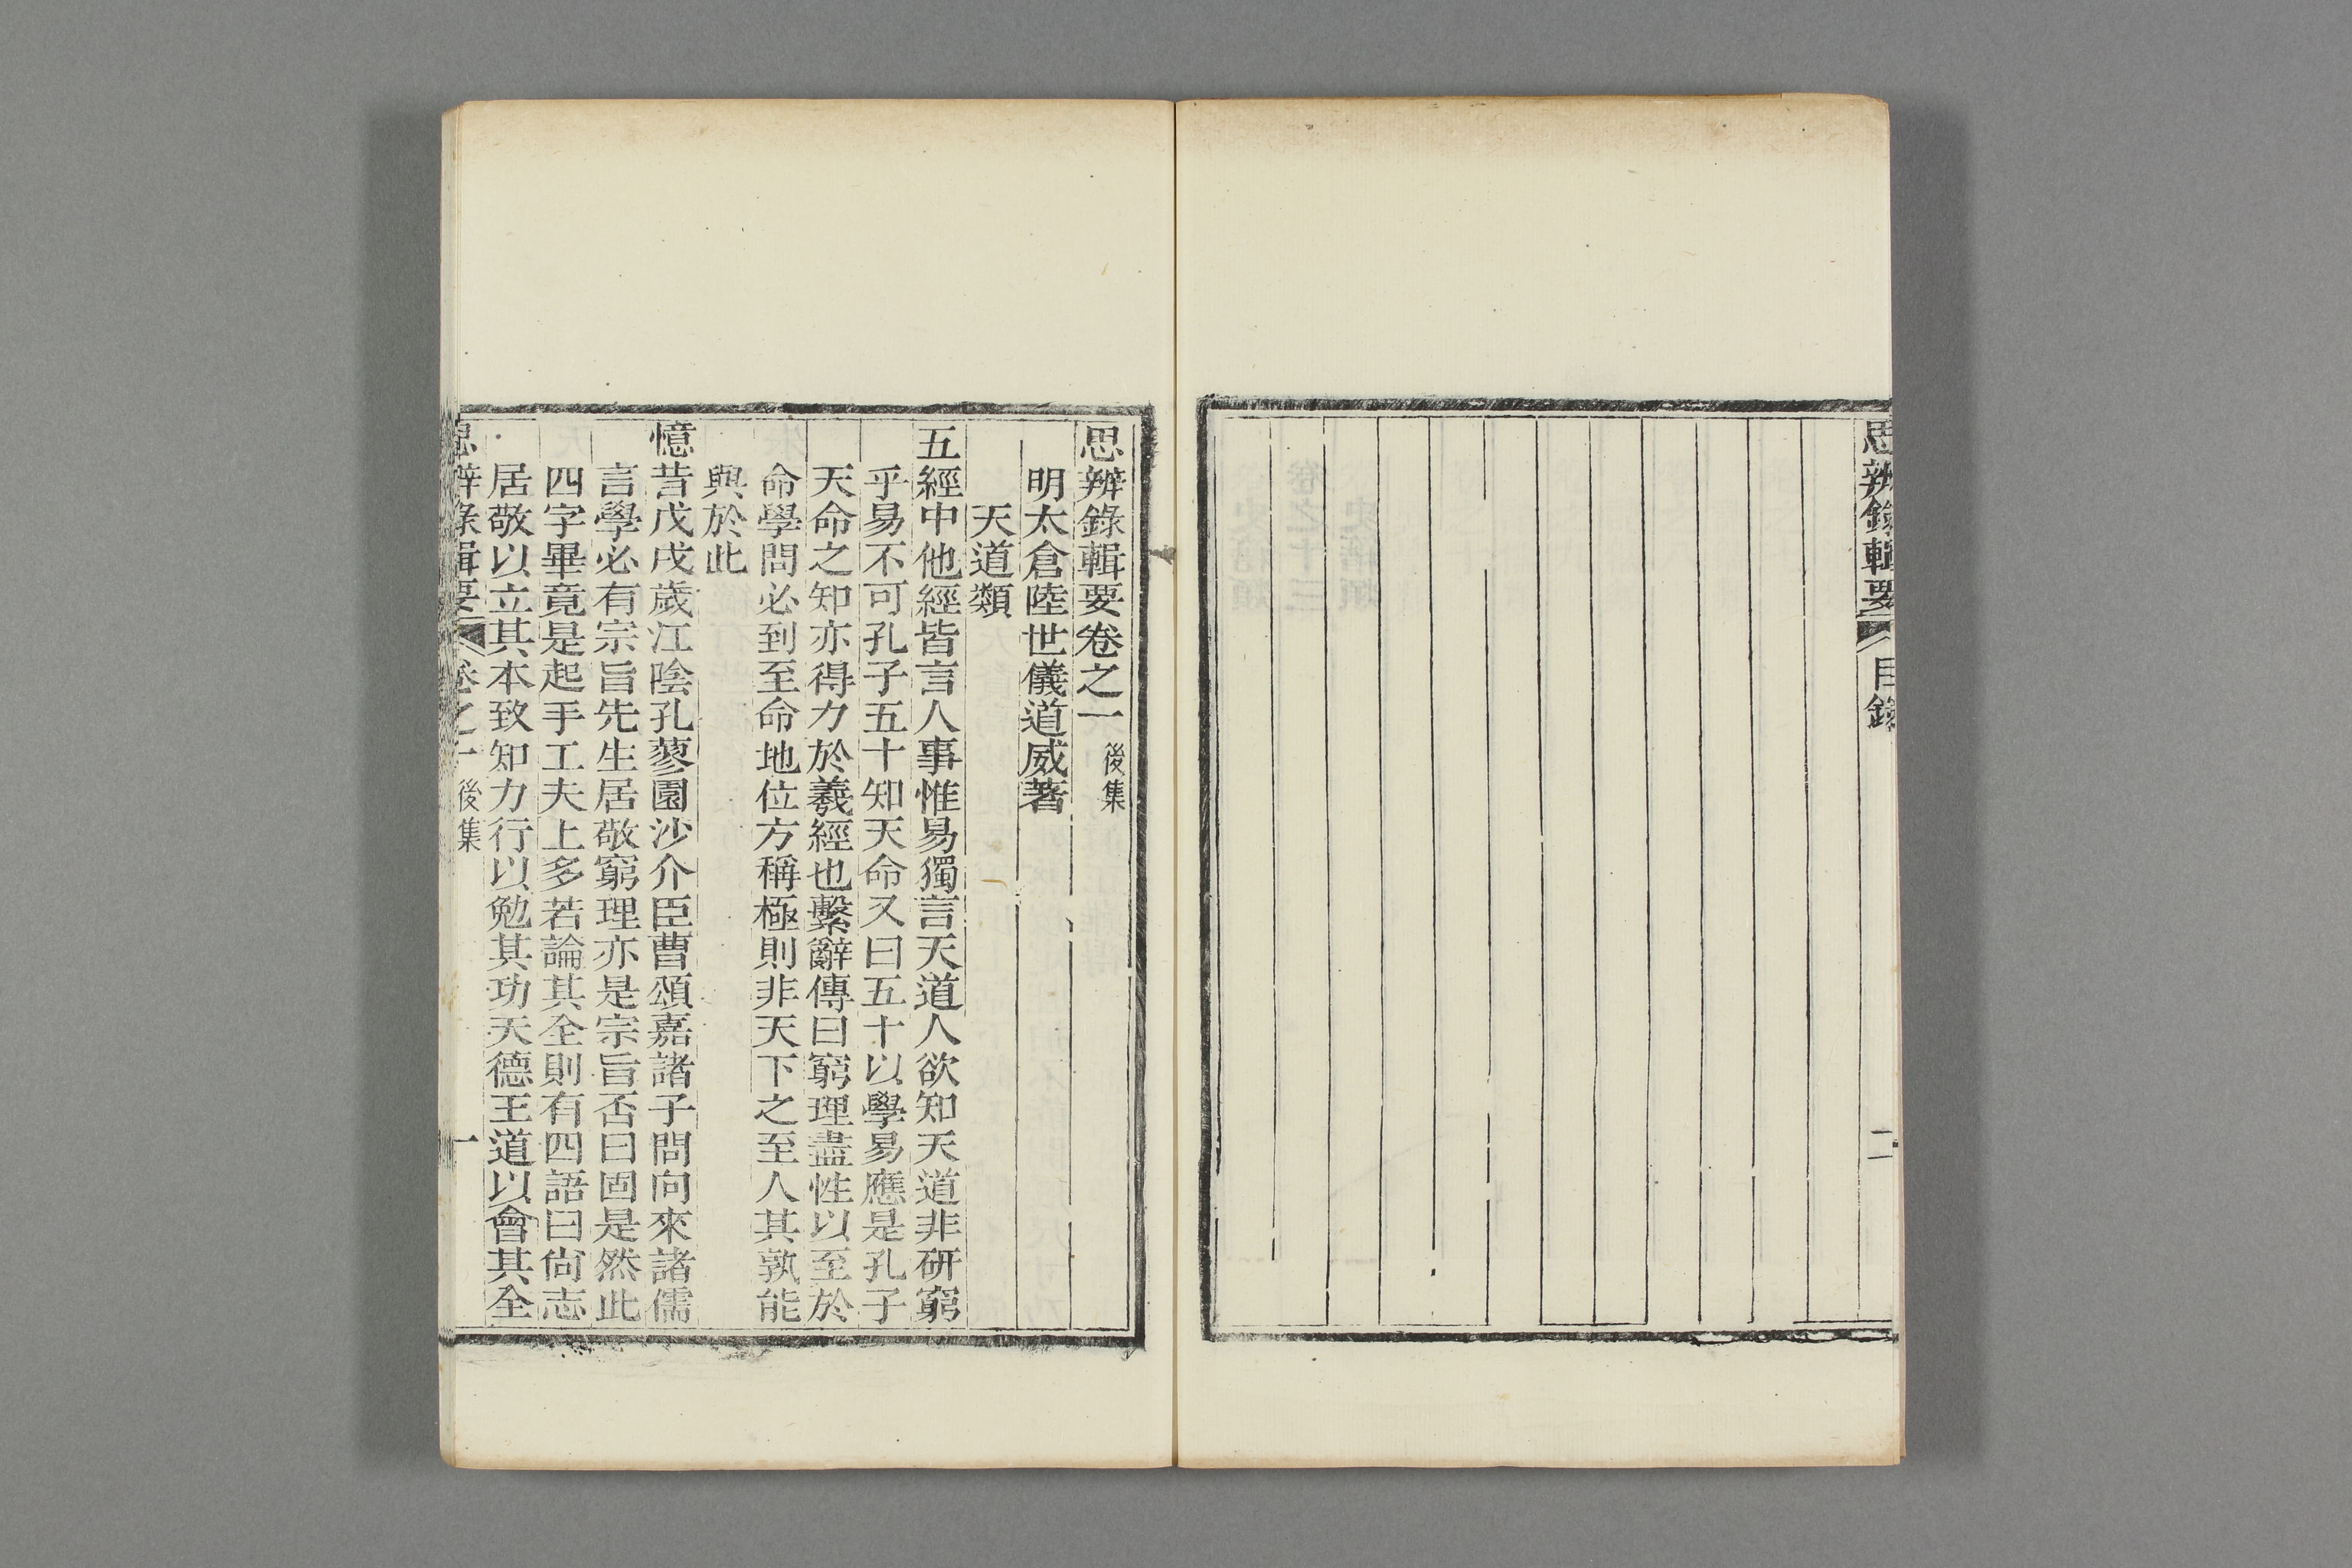 思辨錄輯要 目錄 二
思辨錄輯要卷之一 後集
明太倉陸世儀道威著
天道類
五經中他經皆言人事惟易獨言天道人欲知天道非研窮
乎易不可孔子五十知天命又曰五十以學易應是孔子
天命之知亦得力於羲經也繫辭傳曰窮理盡性以至於
命學問必到至命地位方稱極則非天下之至人其孰能
與於此
憶昔戊戌歲江陰孔蓼園沙介臣曹頌嘉諸子問向來諸儒
言學必有宗旨先生居敬窮理亦是宗旨否曰固是然此
四字畢竟是起手工夫上多若論其全則有四語曰尙志
居敬以立其本致知力行以勉其功天德王道以會其全
思辨錄輯要 卷之一 後集 一